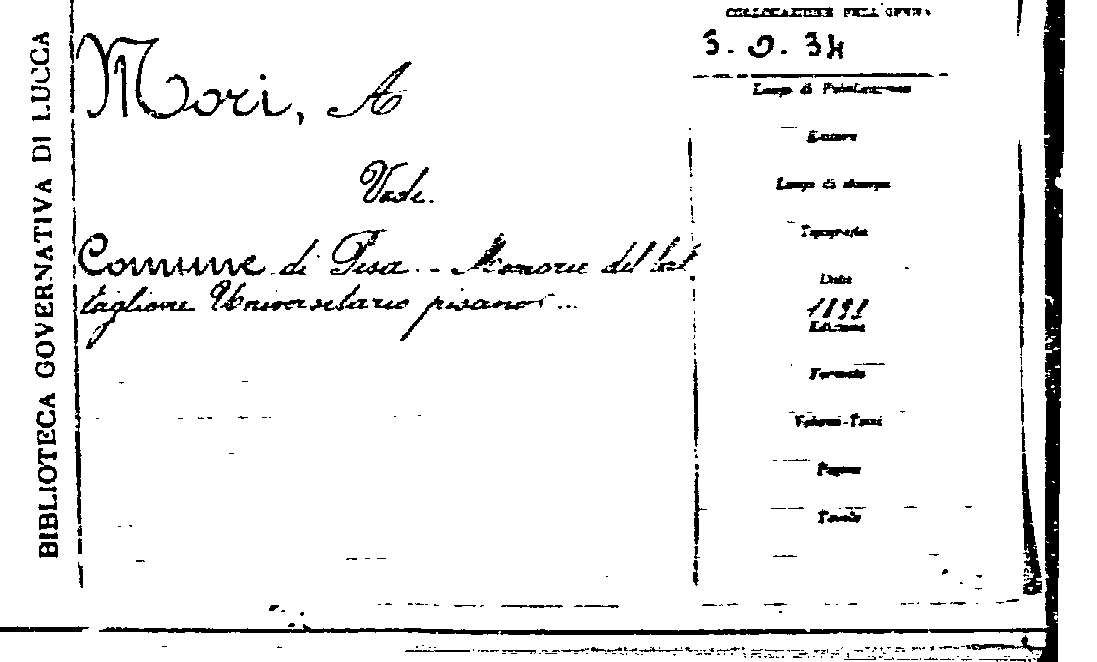 BIBLIOTECA GOVERNATIVA DI LUCCA
Mori, A
Vedi.
Comune di Pisa. - Memorie del bat
taglione Universitario pisano...
COLLOCAZIONE DELL'OPERA
3. 34
Luogo di Pubblicazione
Editore
Luogo di stampa
Tipografia
Data
Edizione
Formato
Volumi-Tomi
Pagine
Tavole